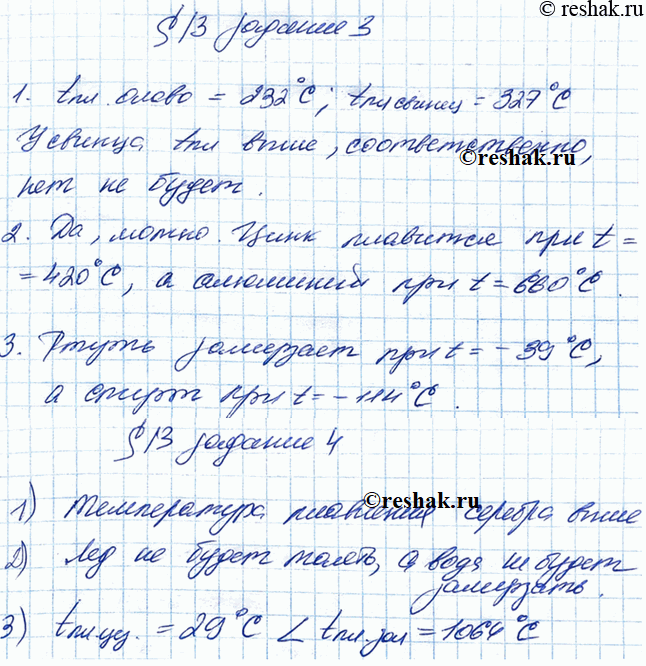 © reshak.ru
§ 13 задание 3
1. tпл. олово = 232°С; tпл свинец = 327°С
У свинца tпл выше, соответственно,
©reshak.ru
нет не будет.
2. Да, можно. Цинк плавится при t =
= 420°С, а алюминий при t = 660°С.
3. Ртуть замерзает при t = - 39°С,
а спирт при t = - 114°С.
§ 13 задание 4
©reshak.ru
1) температура плавления серебра выше
2) Лед не будет таять, а вода не будет
замерзать.
3) tпл.цез. = 29°С < tпл.зол = 1064°С